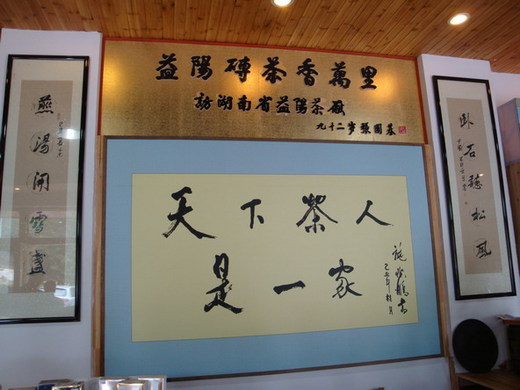 益陽磚茶香萬里
訪湖南省益陽茶廠
九十二岁張國基
天下茶人
是一家
卧石聽松風
燕湯開雪盞